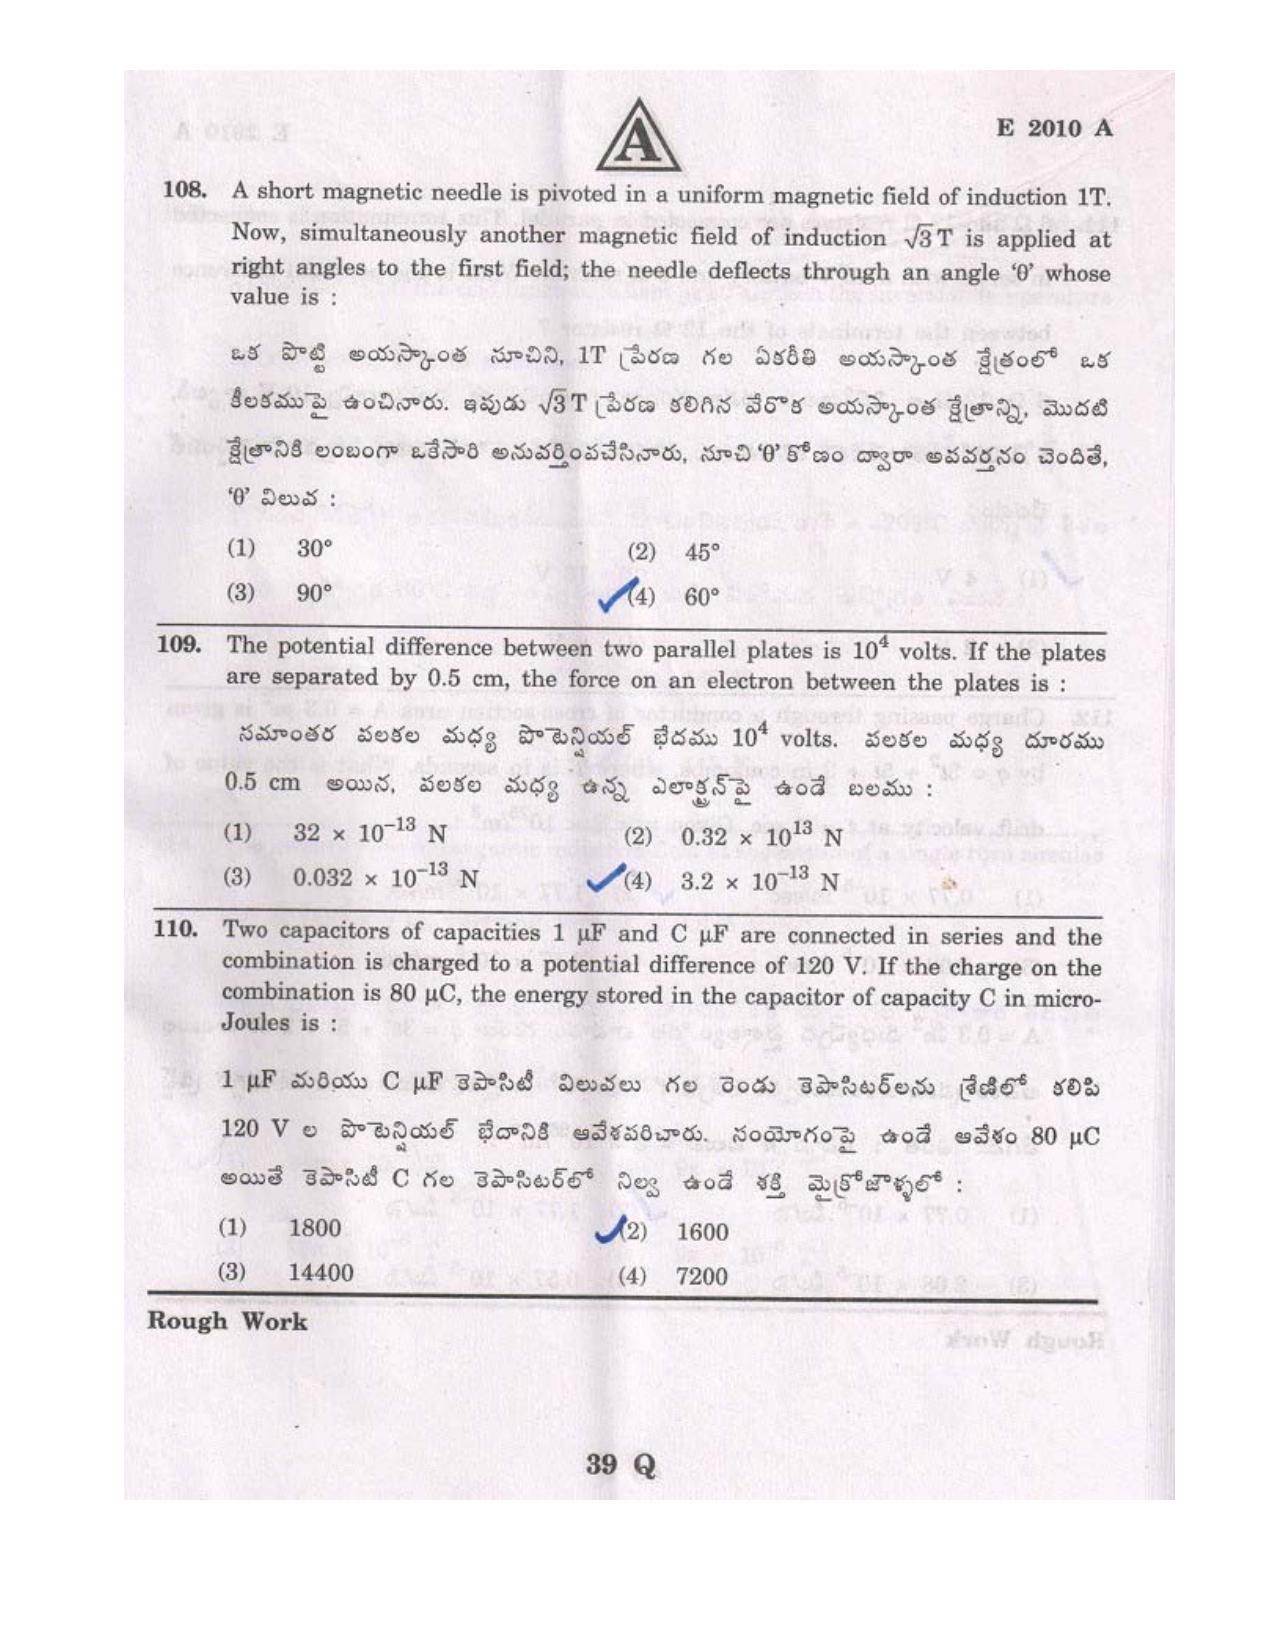 A
E 2010 A
108. A short magnetic needle is pivoted in a uniform magnetic field of induction 1T.
Now, simultaneously another magnetic field of induction √3 T is applied at
right angles to the first field; the needle deflects through an angle ‘θ’ whose
value is :
ఒక పొట్టి అయస్కాంత సూచిని, 1T ప్రేరణ గల ఏకరీతి అయస్కాంత క్షేత్రంలో ఒక
కీలకముపై ఉంచినారు. ఇపుడు √3 T ప్రేరణ కలిగిన వేరొక అయస్కాంత క్షేత్రాన్ని, మొదటి
క్షేత్రానికి లంబంగా ఒకేసారి అనువర్తింపచేసినారు, సూచి ‘θ’ కోణం ద్వారా అపవర్తనం చెందితే,
‘θ’ విలువ :
(1) 30° (2) 45°
(3) 90° (4) 60°
109. The potential difference between two parallel plates is 10⁴ volts. If the plates
are separated by 0.5 cm, the force on an electron between the plates is :
సమాంతర పలకల మధ్య పొటెన్షియల్ భేదము 10⁴ volts. పలకల మధ్య దూరము
0.5 cm అయిన, పలకల మధ్య ఉన్న ఎలాక్ట్రన్‌పై ఉండే బలము :
(1) 32 × 10⁻¹³ N (2) 0.32 × 10¹³ N
(3) 0.032 × 10⁻¹³ N (4) 3.2 × 10⁻¹³ N
110. Two capacitors of capacities 1 μF and C μF are connected in series and the
combination is charged to a potential difference of 120 V. If the charge on the
combination is 80 μC, the energy stored in the capacitor of capacity C in micro-
Joules is :
1 μF మరియు C μF కెపాసిటీ విలువలు గల రెండు కెపాసిటర్‌లను శ్రేణిలో కలిపి
120 V ల పొటెన్షియల్ భేదానికి ఆవేశపరిచారు. సంయోగంపై ఉండే ఆవేశం 80 μC
అయితే కెపాసిటీ C గల కెపాసిటర్‌లో నిల్వ ఉండే శక్తి మైక్రోజౌళ్ళలో :
(1) 1800 (2) 1600
(3) 14400 (4) 7200
Rough Work
39 Q